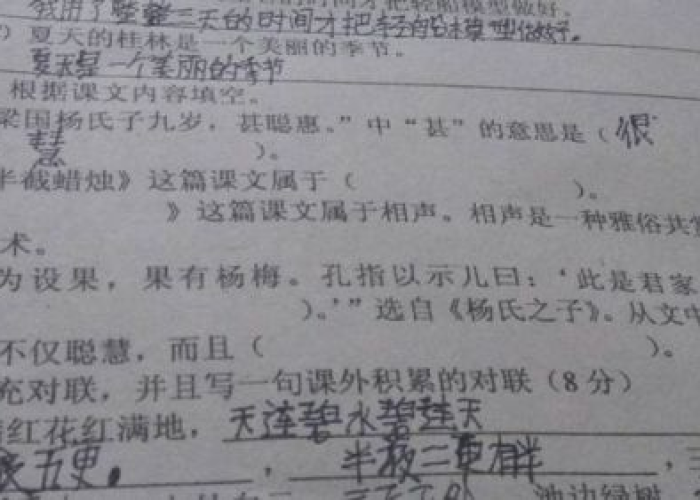 我用了整整三天的时间才把轻的船模型做好。
）夏天的桂林是一个美丽的季节。
夏天是一个美丽的季节
根据课文内容填空。
梁国杨氏子九岁，甚聪惠。”中“甚”的意思是（很
慧 ）。
半截蜡烛》这篇课文属于（ ）。
》这篇课文属于相声。相声是一种雅俗共
术。
为设果，果有杨梅。孔指以示儿曰：‘此是君家
）。’”选自《杨氏之子》。从文中
不仅聪慧，而且（ ）。
充对联，并且写一句课外积累的对联（8分）
红花红满地，天连碧水碧连天
五更。，半夜三更半，三
池边绿树